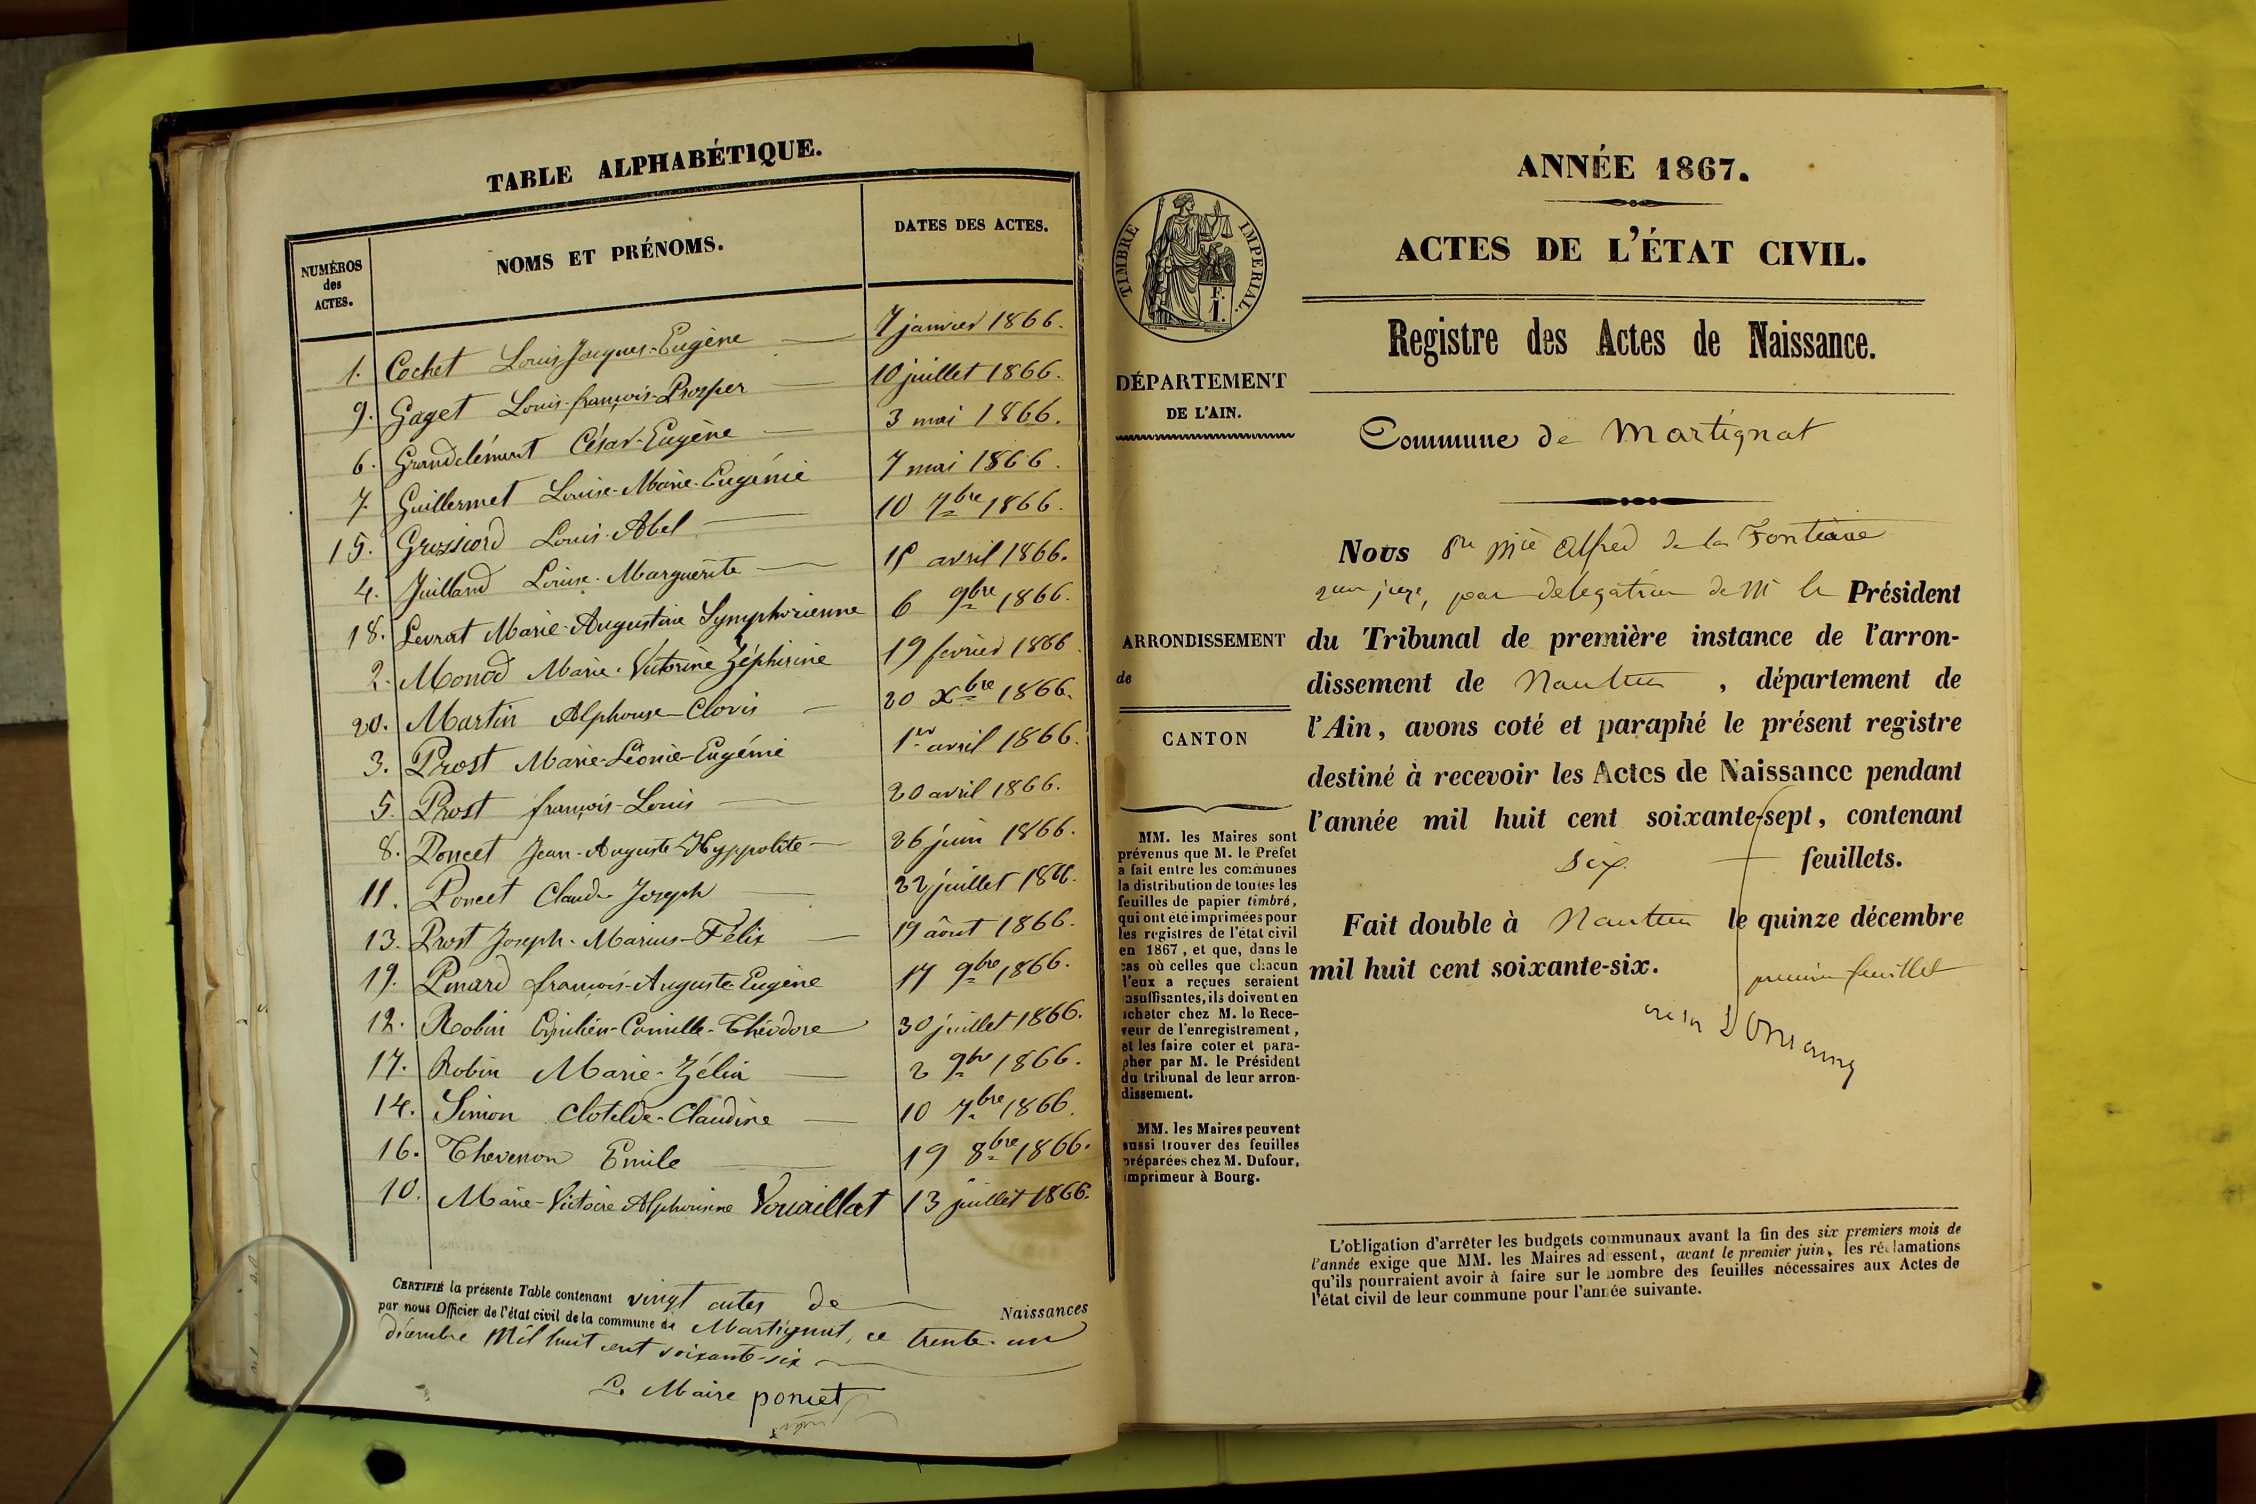 TABLE ALPHABÉTIQUE.
NUMÉROS
des
ACTES.
NOMS ET PRÉNOMS.
DATES DES ACTES.
1. Cochet Louis Jacques-Eugène 7 janvier 1866.
9. Gaget Louis-françois-Prosper 10 juillet 1866.
6. Grandclément César-Eugène 3 mai 1866.
7. Guillermet Louise-Marie-Eugénie 7 mai 1866.
15. Grossiord Louis-Abel 10 7bre 1866.
4. Juilland Louise-Marguerite avril 1866.
18. Levrat Marie-Augustine Symphorienne 6 9bre 1866.
2. Monod Marie-Victorine Zéphirine 19 février 1866.
20. Martin Alphonse-Clovis 20 Xbre 1866.
3. Prost Marie-Léonie-Eugénie 1er avril 1866.
5. Prost françois-Louis 20 avril 1866.
8. Poncet Jean-Auguste-Hyppolite 26 juin 1866.
11. Poncet Claude Joseph 22 juillet 1866.
13. Prost Joseph-Marius-Félix 19 août 1866.
19. Pinard françois-Auguste-Eugène 17 9bre 1866.
12. Robin Camille-Théodore 30 juillet 1866.
17. Robin Marie-Zélia 2 9bre 1866.
14. Simon Clotilde-Claudine 10 7bre 1866.
16. Thevenon Emile 19 8bre 1866.
10. Marie-Victoire Alphonsine Vouaillat 13 juillet 1866.
CERTIFIÉ la présente Table contenant vingt actes de Naissances
par nous Officier de l'état civil de la commune de Martignat, ce trente-un
décembre Mil huit cent soixante-six
Le Maire poncet
ANNÉE 1867.
ACTES DE L'ÉTAT CIVIL.
Registre des Actes de Naissance.
TIMBRE IMPERIAL.
F.
1.
DÉPARTEMENT
DE L'AIN.
Commune de Martignat
Nous Alfred de la
juge, par délégation de Mr le Président
du Tribunal de première instance de l'arron-
dissement de Nantua, département de
l'Ain, avons coté et paraphé le présent registre
destiné à recevoir les Actes de Naissance pendant
l'année mil huit cent soixante-sept, contenant
six feuillets.
Fait double à Nantua le quinze décembre
mil huit cent soixante-six.
premier feuillet
ARRONDISSEMENT
de
CANTON
MM. les Maires sont
prévenus que M. le Préfet
a fait entre les communes
la distribution de toutes les
feuilles de papier timbré,
qui ont été imprimées pour
les registres de l'état civil
en 1867, et que, dans le
cas où celles que chacun
d'eux a reçues seraient
insuffisantes, ils doivent en
acheter chez M. le Rece-
veur de l'enregistrement,
et les faire coter et para-
pher par M. le Président
du tribunal de leur arron-
dissement.
MM. les Maires peuvent
aussi trouver des feuilles
préparées chez M. Dufour,
imprimeur à Bourg.
L'obligation d'arrêter les budgets communaux avant la fin des six premiers mois de
l'année exige que MM. les Maires adressent, avant le premier juin, les réclamations
qu'ils pourraient avoir à faire sur le nombre des feuilles nécessaires aux Actes de
l'état civil de leur commune pour l'année suivante.